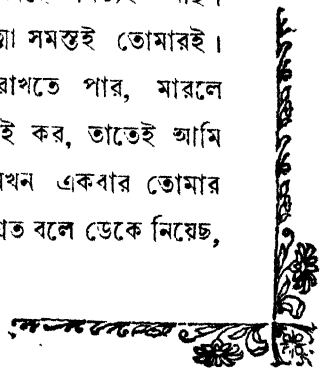 সমস্তই তোমারই।
রাখতে পার, মারলে
ই কর, তাতেই আমি
যখন একবার তোমার
শ্রিত বলে ডেকে নিয়েছ,